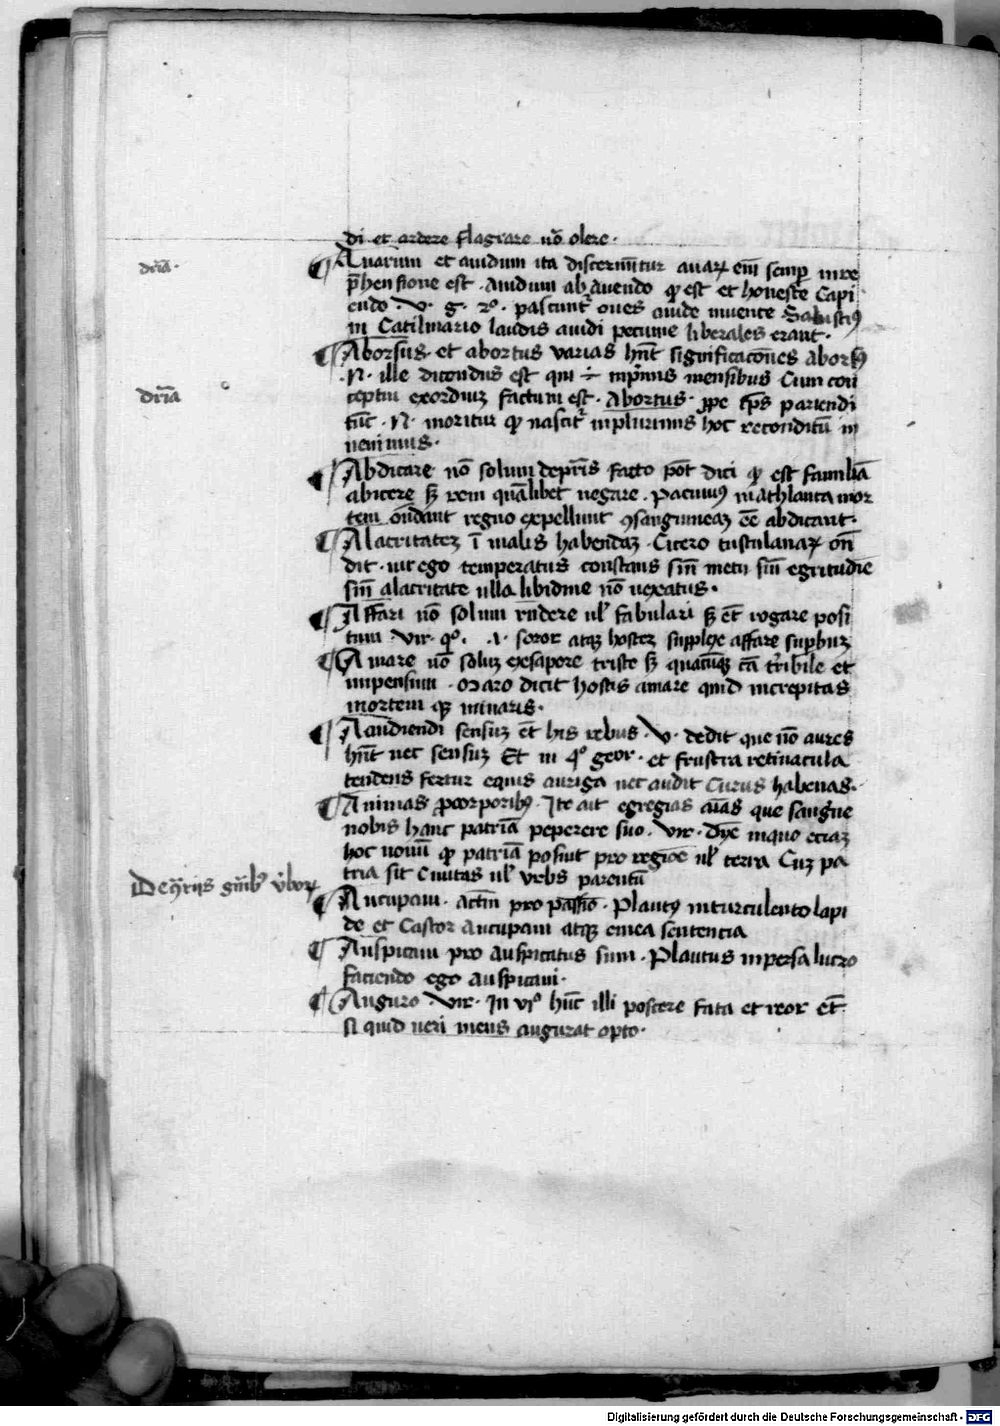 di et ardere flagrare nō olere·
dr̄ia·
Auarum et auidum ita discernūtur auarꝫ em̄ semꝑ in re
p̄hensione est · Auidum ab Auendo ꝙ est et honeste Capi
endo · V· g· 2º · pascunt᷑ oues auide iuuente Salustiꝰ
in Catilinario laudis auidi pecunie liberales erant·
Aborsus· et abortus varias hn̄t significacōnes aborsꝰ
·N· ille dicendus est qui ÷ inp̄mis mensibus Cum con
dr̄ia
ceptiu exordiuꝫ factum est· Abortus· ꝓpe tp̄s pariendi
tūc ·N· moritur ꝙ nascit᷑ inplurimis hoc reconditū in
uenimus·
Abdicare nō solum depr̄is facto pōt dici ꝙ est familiā
abicere sꝫ rem quālibet negare · Pacuuiꝰ in athlanta mor
tem on̄dant regno expellunt ꝯsanguineaꝫ ēē abdicant·
Alacritateꝫ ī malis habendaꝫ · Cicero tusculanaꝝ on̄
dit · vir ego temperatus constans sin̄ metu sin̄ egritudīe
sin̄ alacritate ulla libidine nō uexatus·
Affari nō solum rn̄dere ul᷑ fabulari sꝫ ēt rogare posi
tum Vir· qº· ·I· soror atqꝫ hosteꝫ supplex affare suꝑbuꝫ
Amare nō soluꝫ exsapore triste sꝫ quacūqꝫ cā tr̄ibile et
inpensum · Maro dicit hostis amare quid increpitas
mortem qꝫ minaris·
Audiendi sensuꝫ ēt his rebus · V· dedit que nō aures
hn̄t nec sensuꝫ Et in qº geor· et frustra retinacula
tendens fertur equis auriga nec audit Curus habenas·
Animas ꝓcorporibꝰ · Ite ait egregias aīas que sangīne
nobis hanc patriā peperere suo · Vir· Dȳe inquo eciaꝫ
hoc nouū ꝙ patriā posuit pro regiōe ul᷑ terra Cuꝫ pa
tria sit Ciuitas ul᷑ Vrbs parentū
Aucupaui· actm̄ pro passio· Plautꝰ in turculento lapi
de et Castor Aucupaui atqꝫ emea sentencia
Auspicaui pro Auspicatus sum · Plautus inpersa lucro
faciendo ego auspicaui·
Auguro · Vir· In viº hūc illi poscere fata et reor ēt·
si quid ueri mens augurat opto·
Digitalisierung gefördert durch die Deutsche Forschungsgemeinschaft · DFG